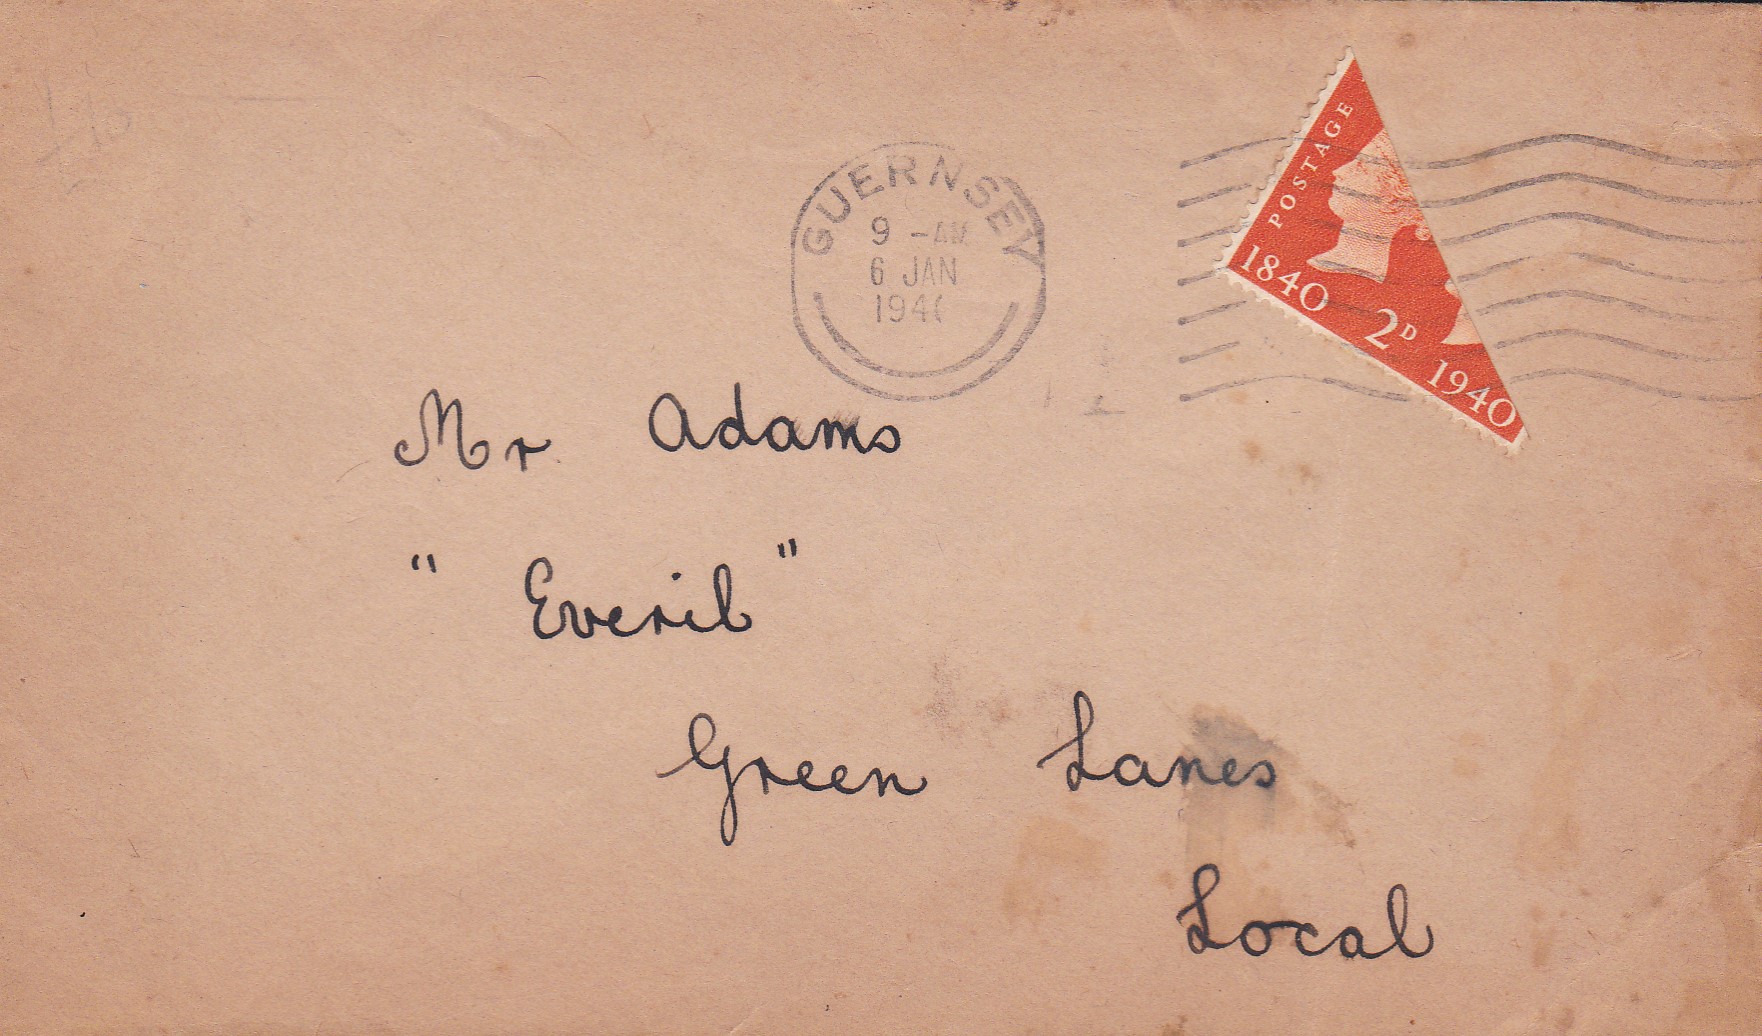 GUERNSEY
9 - AM
6 JAN
194
POSTAGE
1840 2D 1940
Mr Adams
"Everil"
Green Lanes
Local